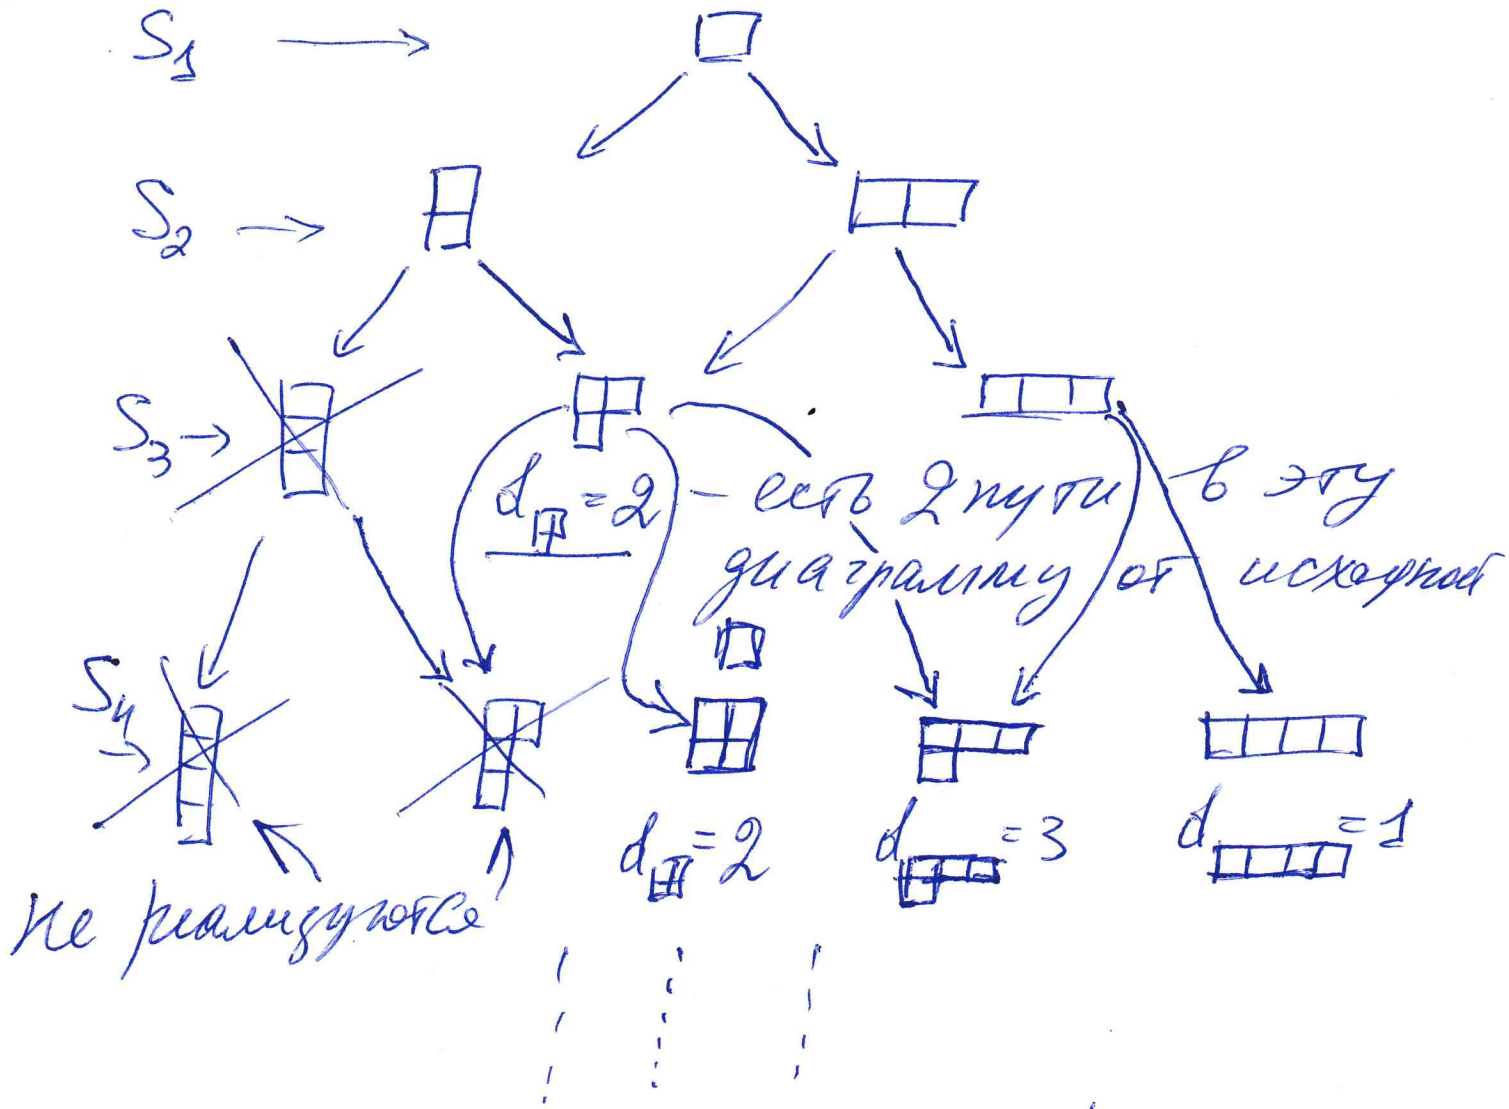 S₁
S₂
S₃
d = 2 – есть 2 пути в эту
диаграмму от исходной
S₄
d = 2
d = 3
d = 1
не реализуются